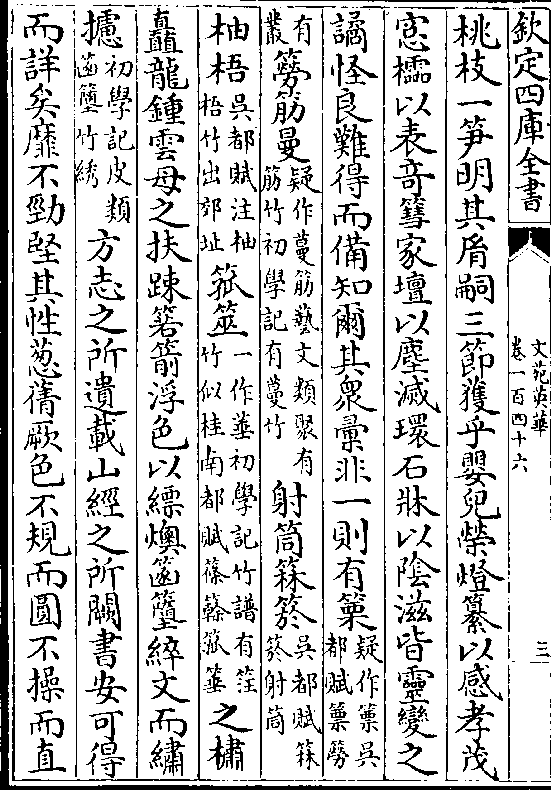 欽定四庫全書
文苑英華
卷一百四十六
三
桃枝一笋明其胥嗣三節獲乎嬰兒榮燈纂以感孝茂
窓櫺以表竒篲家壇以塵滅環石牀以陰滋皆靈變之
譎怪良難得而備知爾其衆彚非一則有篥疑作篥吳都賦篥簩
有叢簩筋曼疑作蔓筋藝文類聚有筋竹初學記有蔓竹射筒箖菸吳都賦箖菸射筒
柚梧吳都賦注柚梧竹出郊址箛筮一作䔰初學記竹譜有筮竹似桂南都賦篠簳箛箠之橚
矗龍鍾雲母之扶踈箬箭浮色以縹燠䈪𥵂綷文而繡
攄初學記皮類䈪𥵂竹綉方志之所遺載山經之所闕書安可得
而詳矣靡不勁堅其性葱蒨厥色不規而圓不操而直